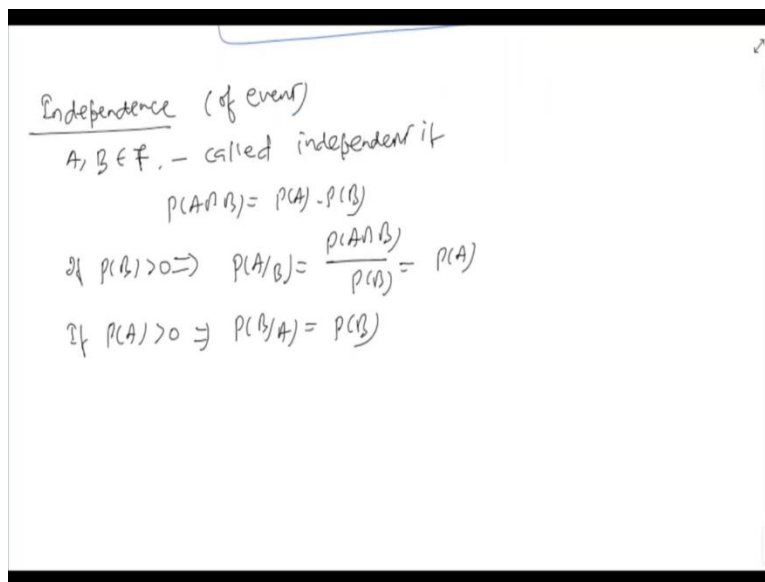 Independence (of event)
A, B ∈ F. – called independent if
P(A∩B) = P(A) . P(B)
If P(B) >0 ⇒ P(A/B) = P(A∩B) / P(B) = P(A)
If P(A) >0 ⇒ P(B/A) = P(B)